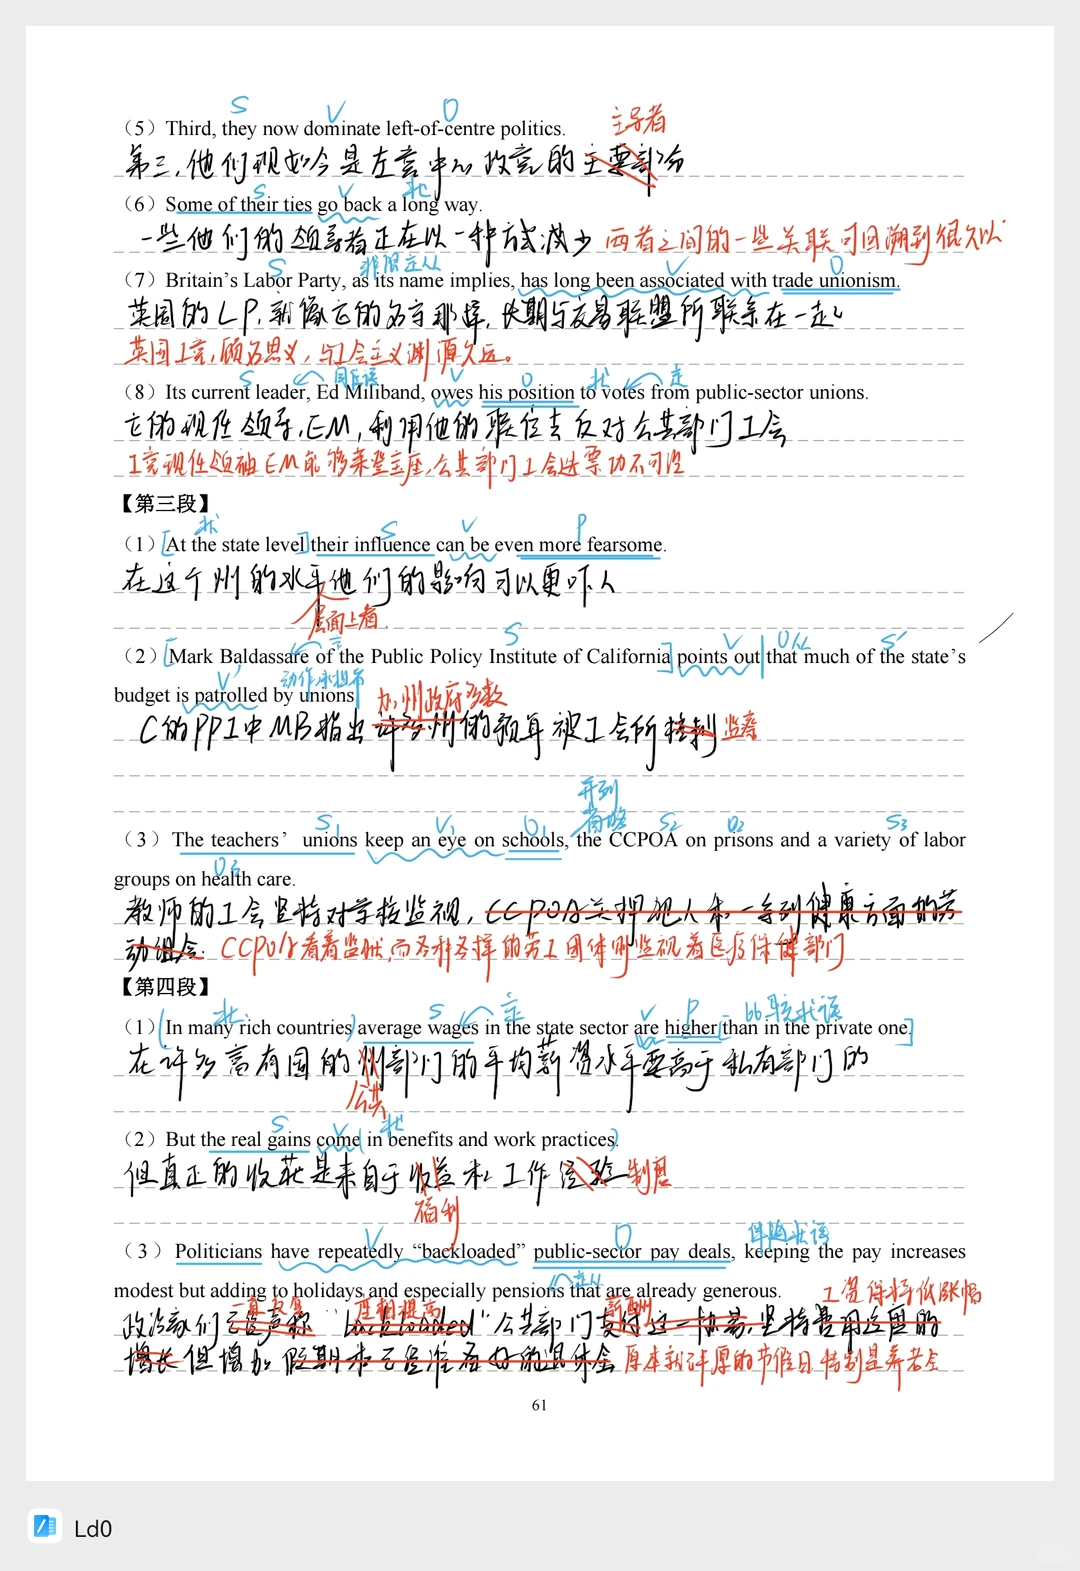 S V O 主导者
（5）Third, they now dominate left-of-centre politics.
第三，他们现如今是左派中心政党的主要部分
S V 状
（6）Some of their ties go back a long way.
一些他们的领导者正在以一种方式减少 两者之间的一些关联可回溯到很久以
S 非限定从 V O
（7）Britain's Labor Party, as its name implies, has long been associated with trade unionism.
英国的LP，就像它的名字那样，长期与贸易联盟所联系在一起
英国工党，顾名思义，与工会主义渊源久远。
S 同位语 V O 状 定
（8）Its current leader, Ed Miliband, owes his position to votes from public-sector unions.
它的现任领导，EM，利用他的职位去反对公共部门工会
工党现任领袖EM能够荣登主座，公共部门工会选票功不可没
【第三段】
状 S V P
（1）[At the state level] their influence can be even more fearsome.
在这个州的水平他们的影响可以更吓人
层面上看
定 S V O从 S'
（2）[Mark Baldassare of the Public Policy Institute of California] points out that much of the state's
V' 动作承担者
budget is patrolled by unions
加州政府多数
C的PPI中MB指出许多州的预算被工会所控制 监督
并列
省略
S1 V1 O1 S2 O2 S3
（3）The teachers' unions keep an eye on schools, the CCPOA on prisons and a variety of labor
O3
groups on health care.
教师的工会坚持对学校监视，CCPOA关押犯人和一系列健康方面的劳
动组会. CCPOA看着监狱，而各种各样的劳工团体则监视着医疗保健部门
【第四段】
状 S 定 V P 比较状语
（1）[In many rich countries] average wages in the state sector are higher [than in the private one.]
在许多富有国的州部门的平均薪资水平要高于私有部门的
公共
S V 状
（2）But the real gains come (in benefits and work practices.)
但真正的收获是来自于收益和工作经验 制度
福利
V O 伴随状语
（3）Politicians have repeatedly “backloaded” public-sector pay deals, keeping the pay increases
定从
modest but adding to holidays and especially pensions that are already generous.
一直反复 薪酬 工资保持低涨幅
增长但增加假期和已经准备好的退休金 原本就丰厚的节假日特别是养老金
61
Ld0